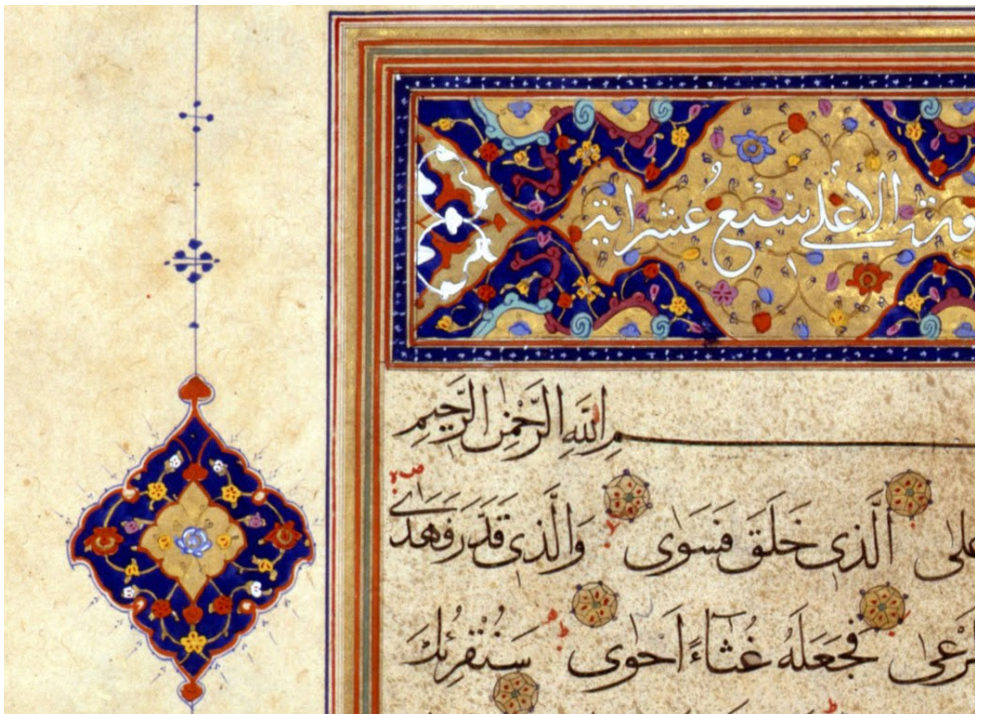 ورة الاعلى سبع عشر اية
مِ اللَّهِ الرَّحْمٰنِ الرَّحِيمِ
على الَّذى خَلَقَ فَسَوٰى وَالَّذى قَدَّرَ فَهَدٰى
رْعٰى فَجَعَلَهُ غُثَآءً اَحْوٰى سَنُقْرِئُكَ